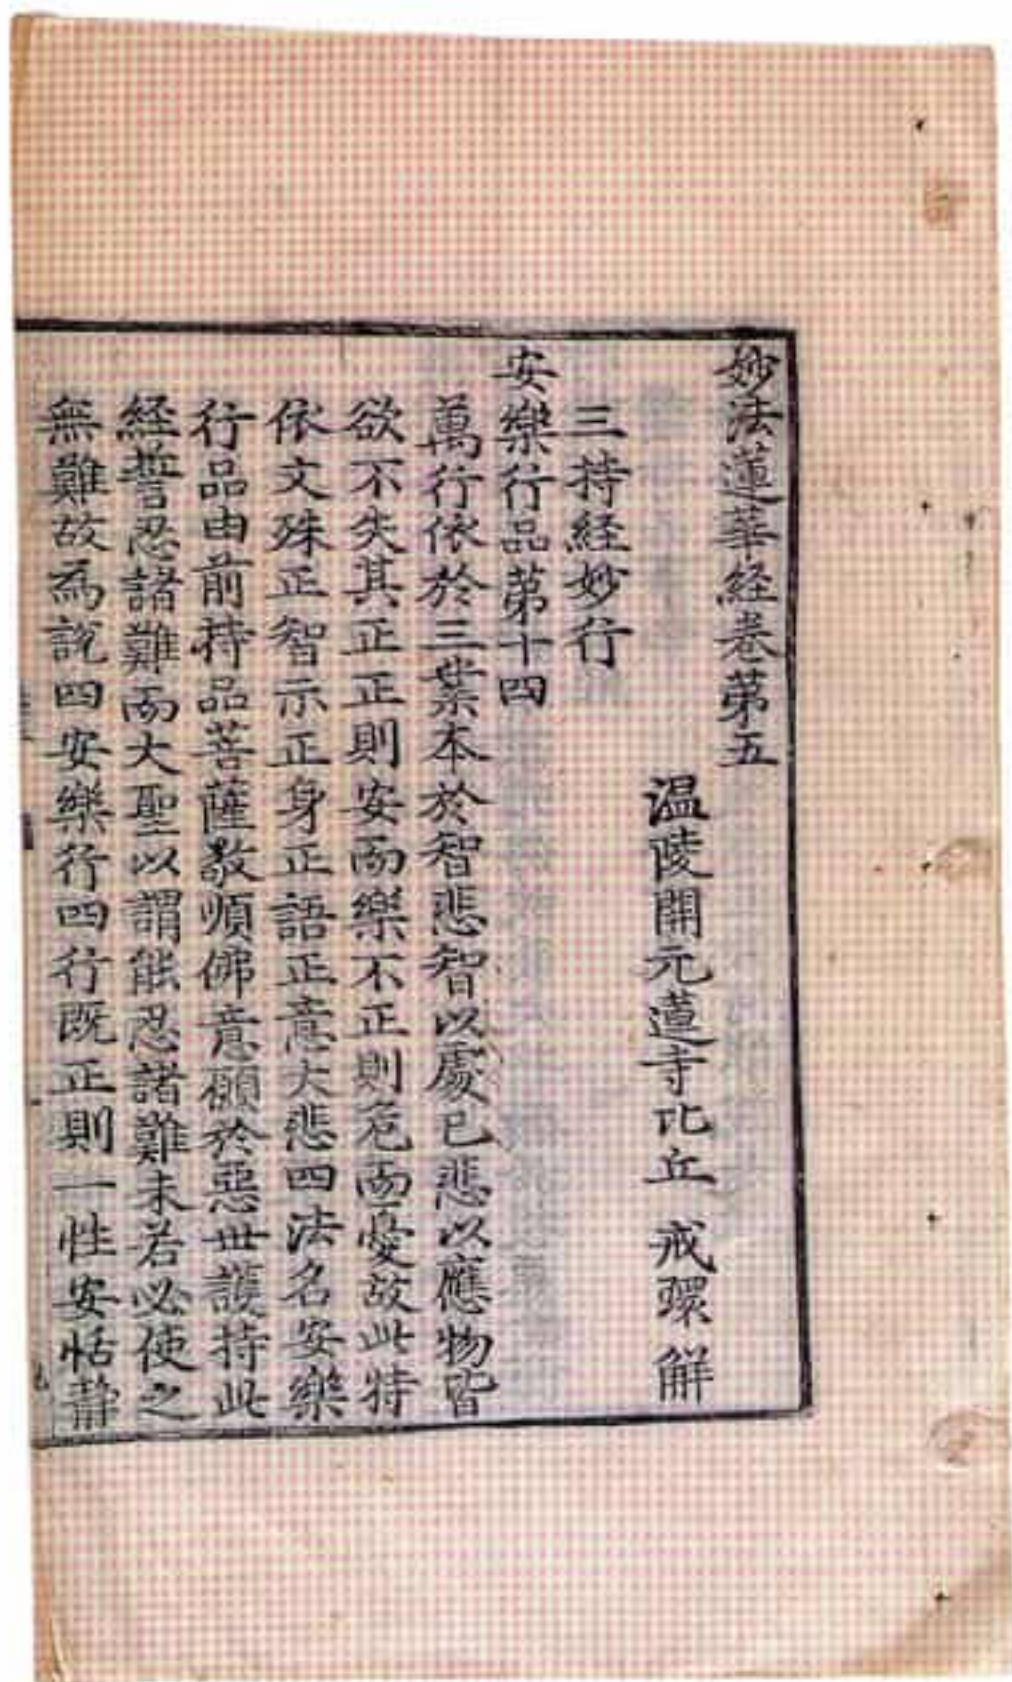 妙法蓮華経卷第五
温陵開元蓮寺比丘 戒環 解
三持経妙行
安樂行品第十四
萬行依於三業本於智悲智以處已悲以應物皆
欲不失其正正則安而樂不正則危而憂故此特
依文殊正智示正身正語正意大悲四法名安樂
行品由前持品菩薩敬順佛意願於惡世護持此
経誓忍諸難而大聖以謂能忍諸難未若必使之
無難故為說四安樂行四行既正則一性安恬靜